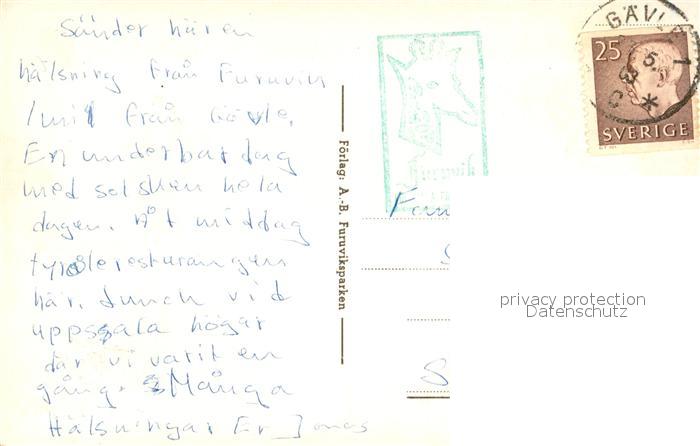 Sänder här en
hälsning från Furuvik
1 mil från Gävle.
En underbar dag
med solsken hela
dagen. Åt middag
tyroleresturangen
här. Lunch vid
uppsala högar
där vi varit en
gång. Många
Hälsningar Er Jonas
Förlag: A.-B. Furuviksparken
Furuvik
GÄVLE 1
25
SVERIGE
Fam
S
privacy protection
Datenschutz